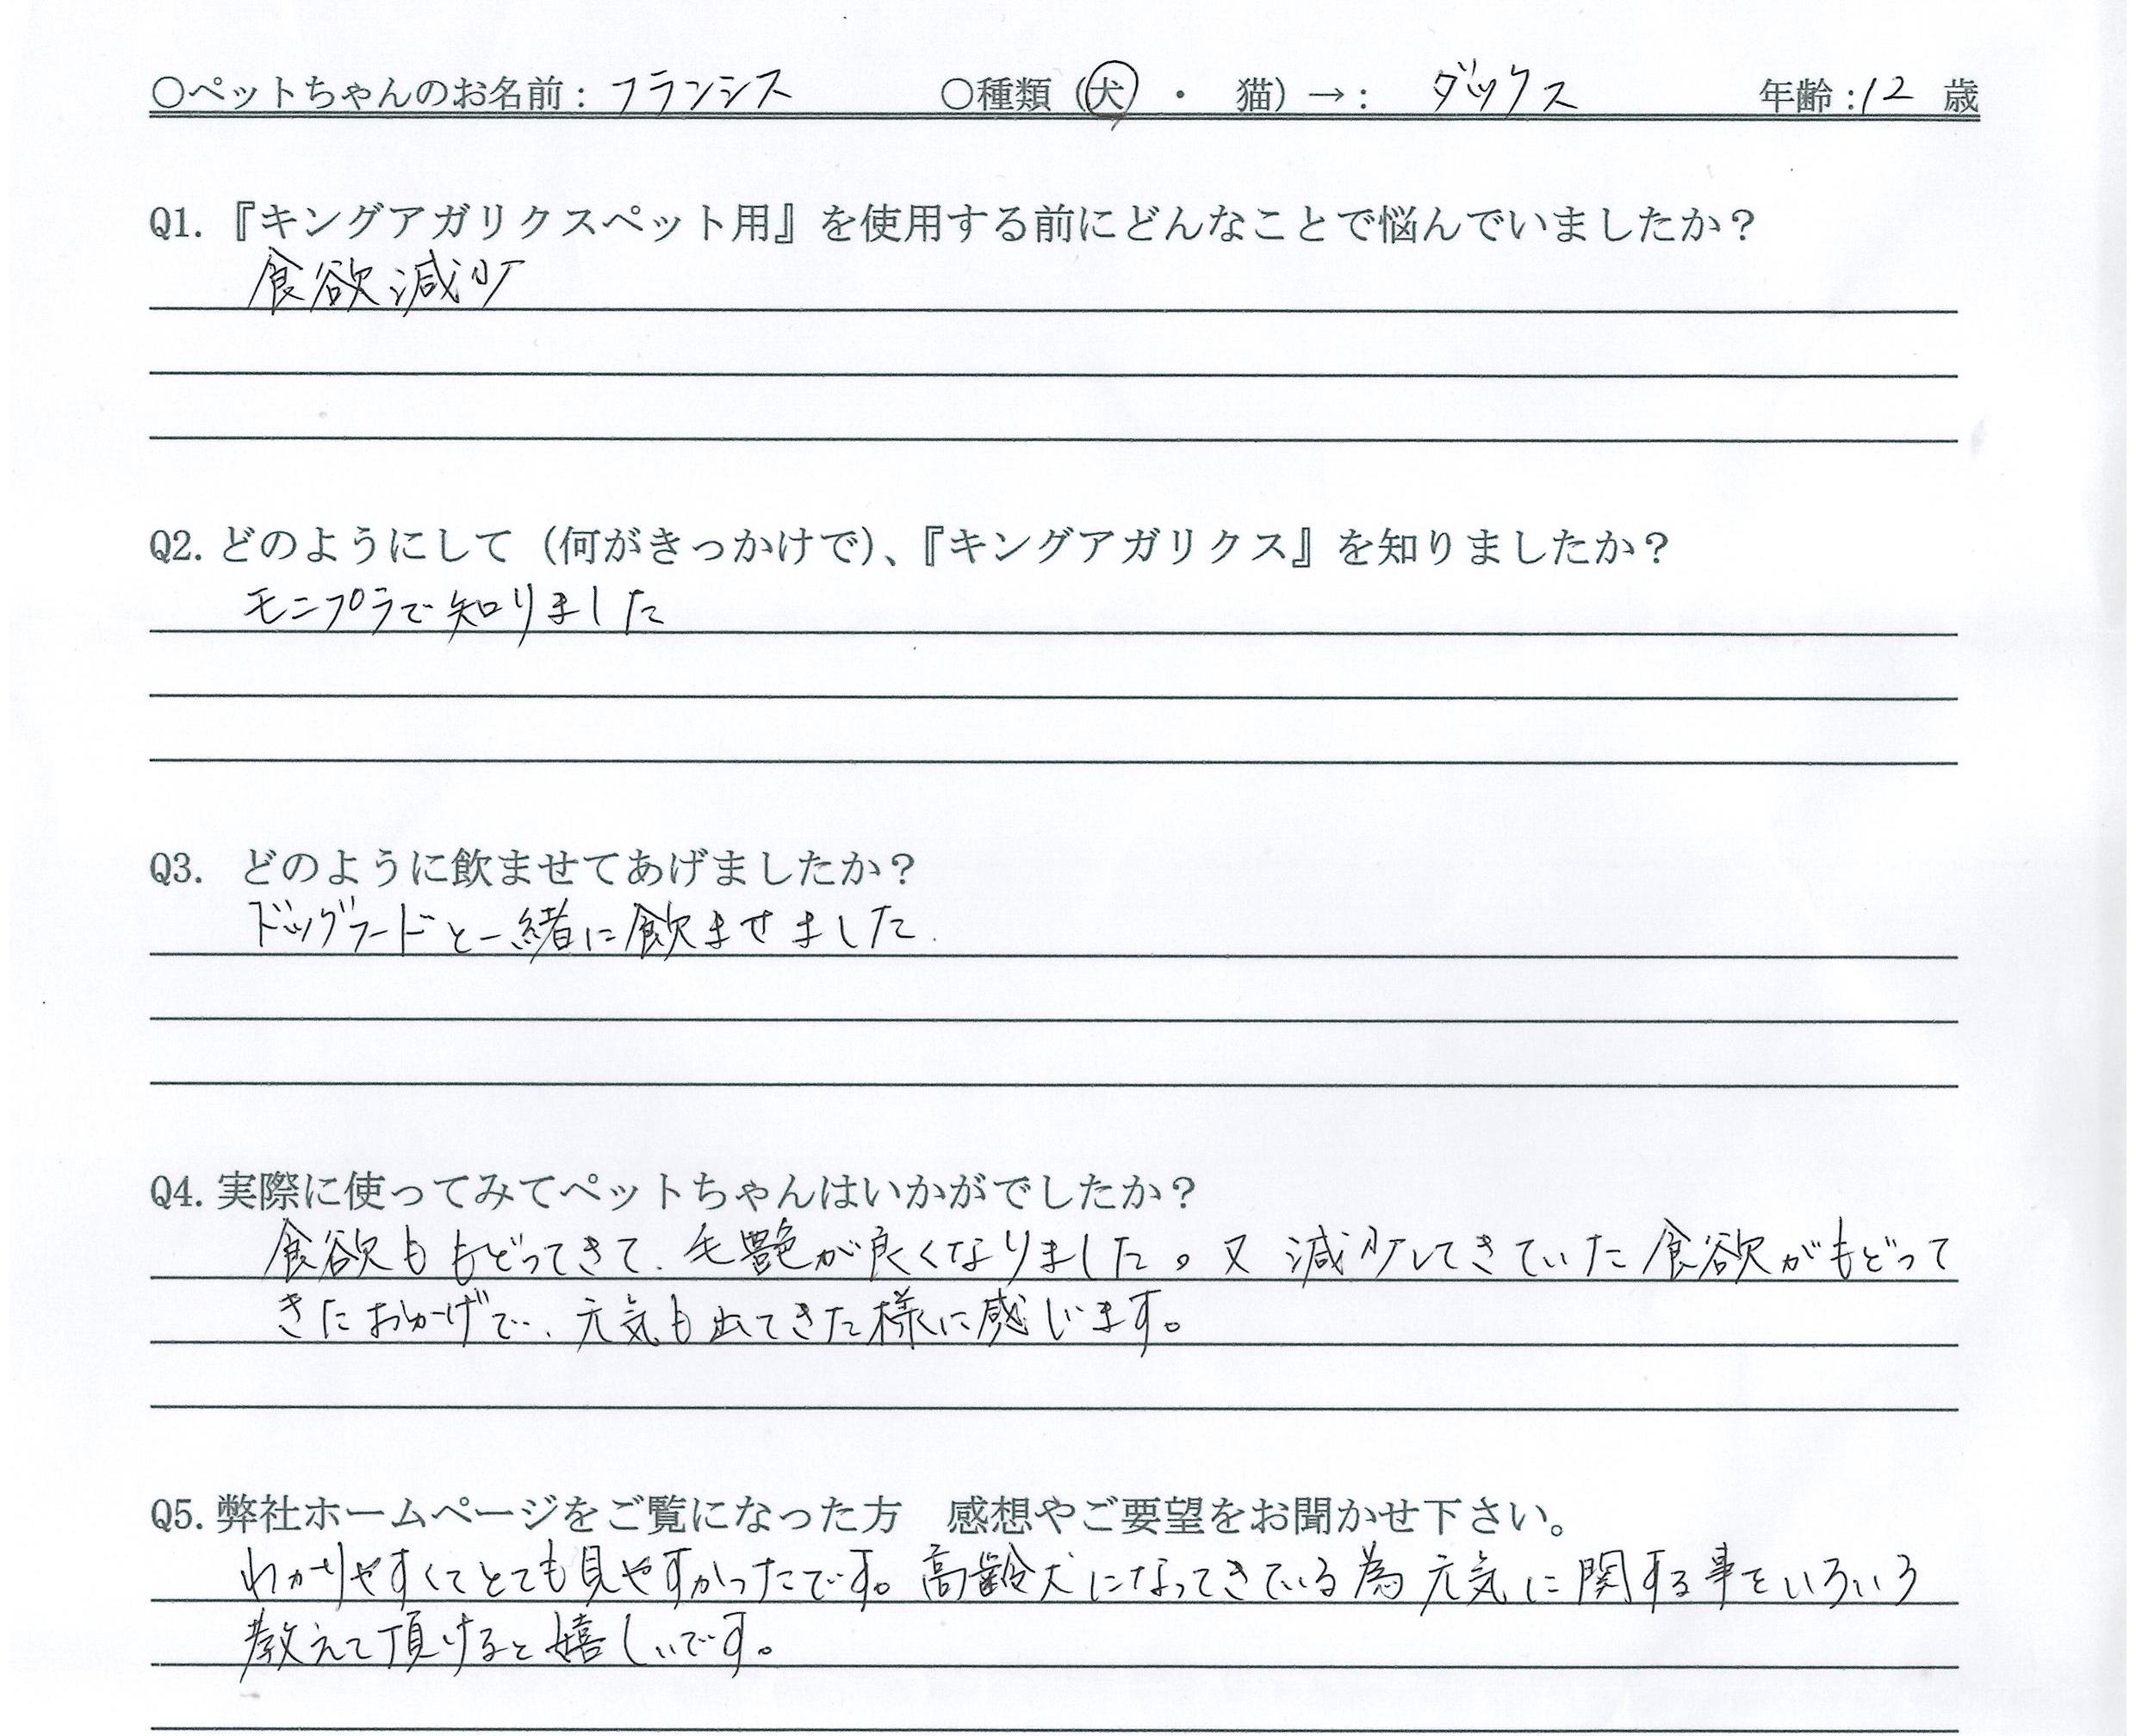 ○ペットちゃんのお名前：フランシス　○種類（犬・猫）→：ダックス　年齢：12 歳
Q1.『キングアガリクスペット用』を使用する前にどんなことで悩んでいましたか？
食欲減少
Q2.どのようにして（何がきっかけで）、『キングアガリクス』を知りましたか？
モニプラで知りました
Q3. どのように飲ませてあげましたか？
ドッグフードと一緒に飲ませました.
Q4.実際に使ってみてペットちゃんはいかがでしたか？
食欲ももどってきて、毛艶が良くなりました。又 減少してきていた食欲がもどって
きたおかげで、元気も出てきた様に感じます。
Q5.弊社ホームページをご覧になった方　感想やご要望をお聞かせ下さい。
わかりやすくてとても見やすかったです。高齢犬になってきている為元気に関する事をいろいろ
教えて頂けると嬉しいです。